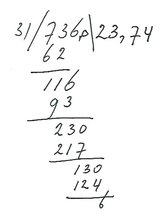 31/736,0|23,74
62
116
93
230
217
130
124
6